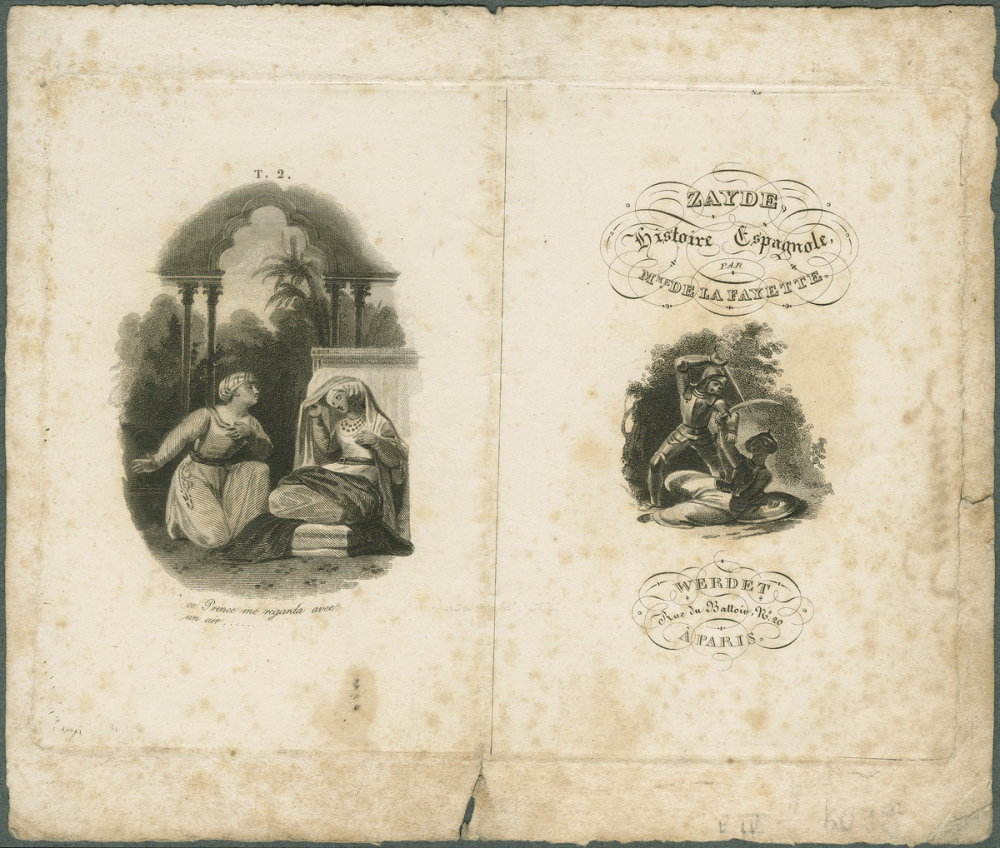 T. 2.
ce Prince me regarda avec
un air......
ZAYDE,
Histoire Espagnole,
PAR
MME DE LA FAYETTE.
WERDET
Rue du Battoir, No. 20
À PARIS.